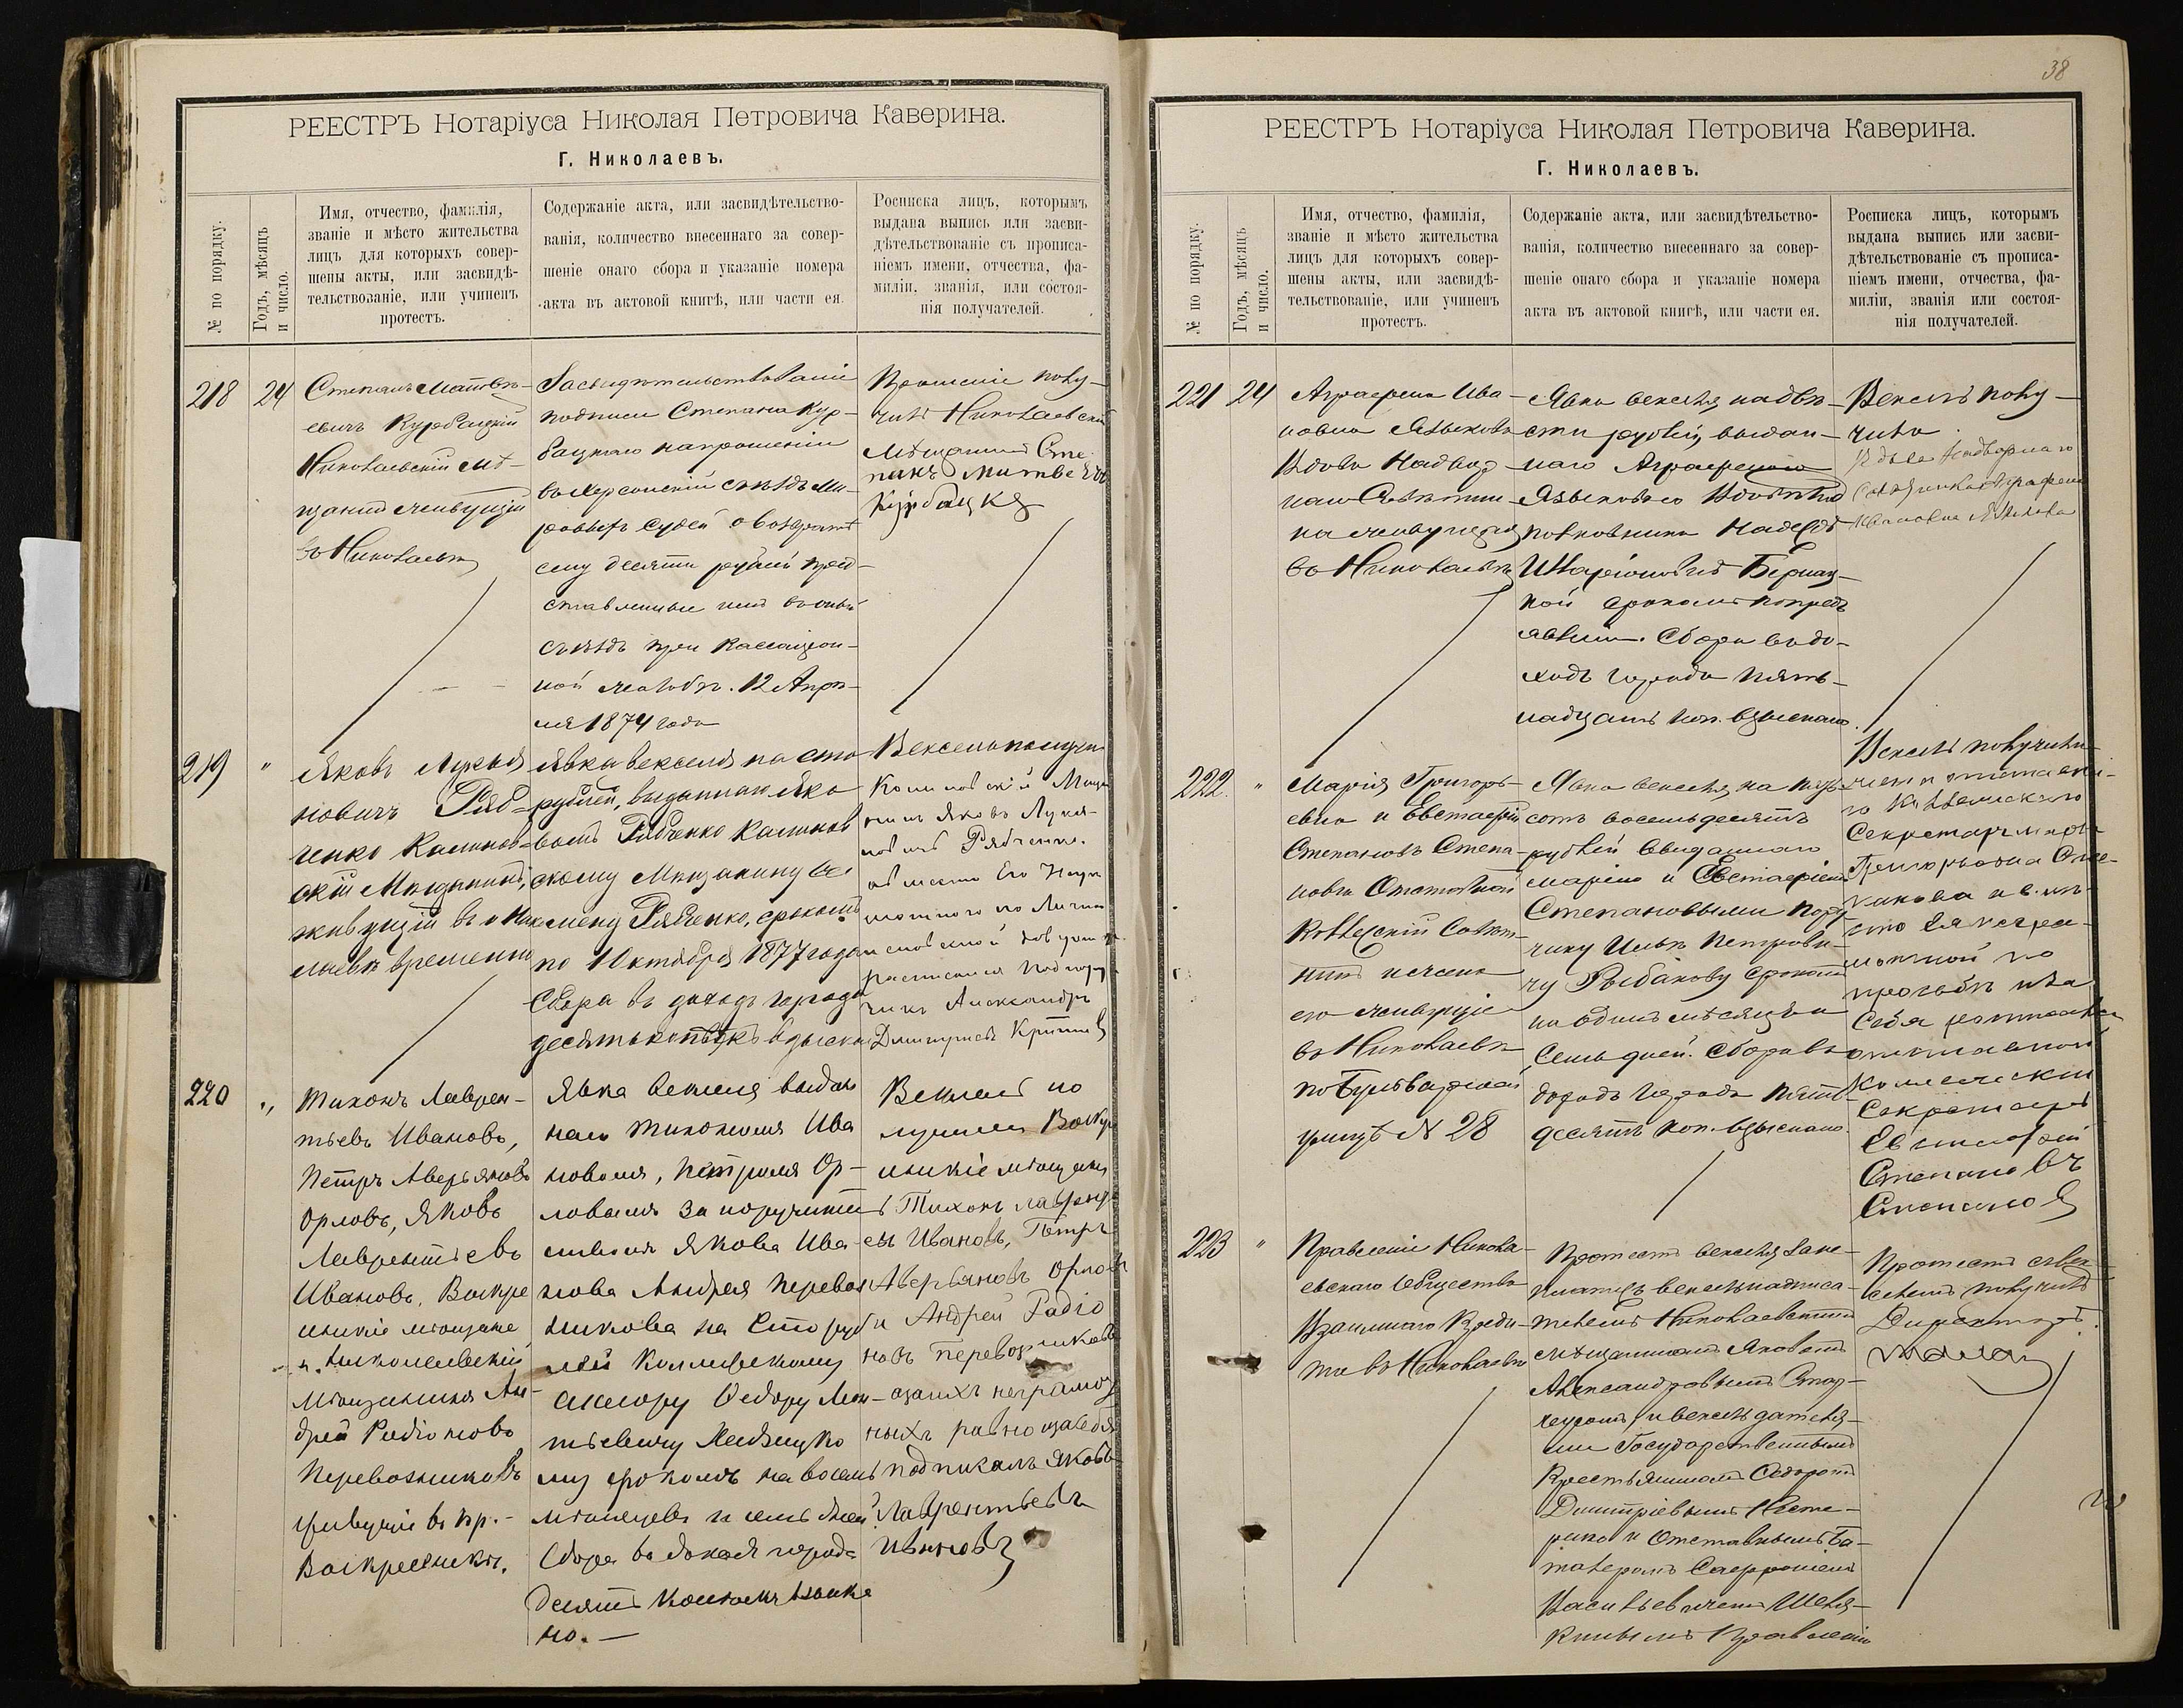 РЕЕСТРЪ Нотаріуса Николая Петровича Каверина.
Г. Николаевъ.
№ по порядку.
Годъ, мѣсяцъ
и число.
Имя, отчество, фамилія,
званіе и мѣсто жительства
лицъ для которыхъ совер-
шены акты, или засвидѣ-
тельствованіе, или учиненъ
протестъ.
Содержаніе акта, или засвидѣтельство-
ванія, количество внесеннаго за совер-
шеніе онаго сбора и указаніе номера
акта въ актовой книгѣ, или части ея.
Росписка лицъ, которымъ
выдана выпись или засви-
дѣтельствованіе съ прописа-
ніемъ имени, отчества, фа-
миліи, званія, или состоя-
нія получателей.
218
24
Степанъ Матвѣ-
евичъ Курбацкій
Николаевскій мѣ-
щанинъ живущій
въ Николаевѣ
Засвидѣтельствованіе
подписи Степана Кур-
бацкаго на прошеніи
въ Херсонскій съѣздъ Ми-
ровыхъ Судей о возвратѣ
ему десяти рублей пред-
ставленныхъ имъ въ оный
съѣздъ при кассаціон-
ной жалобѣ. 12 Апрѣ-
ля 1874 года
Прошеніе полу-
чилъ Николаевскій
мѣщанинъ Сте-
панъ Матвеевъ
Курбацкій
219
"
Яковъ Лукья
новичъ Ряб-
ченко
скій Мѣщанинъ,
живущій въ Нико
лаевѣ временно
Явка векселя на сто
рублей, выданнаго Яко
вомъ Рябченко
скому Мѣщанину
Рябченко, срокомъ
по 1 Октября 1877 года
Сбора въ доходъ города
десять копѣекъ взыскано
Вексель получилъ
Яковъ Лукья-
новичъ Рябченко.
вмѣсто его негра
мотного по личной
росписался
Александръ
220
"
Тихонъ Лаврен-
тьевъ Ивановъ,
Петръ Аверьяновъ
Орловъ, Яковъ
Лаврентьевъ
Ивановъ, Воскре
сенскіе мѣщане
и Николаевскій
мѣщанинъ Ан-
дрей Радіоновъ
Перевозниковъ
живущіе въ пр.-
Воскресенскѣ.
Явка векселя выдан
наго Тихономъ Ива
новымъ, Петромъ Ор-
ловымъ за поручитель
ствомъ Якова Ива-
нова Андрея Перевоз
никова на Сто руб
лей Коллежскому
Федору Леон-
тьевичу
му срокомъ на восемь
мѣсяцевъ и семь дней.
Сбора въ доходъ города
десять копѣекъ взыска
но.—
Вексель по
лучили Воскре
сенскіе мѣщане
Тихонъ Лаврентьевъ
Ивановъ, Петръ
Аверьяновъ Орловъ
и Андрей Радіо
новъ Перевозниковъ
неграмот
ныхъ равно и за себя
подписалъ Яковъ
Лаврентьевъ
Ивановъ
38
РЕЕСТРЪ Нотаріуса Николая Петровича Каверина.
Г. Николаевъ.
№ по порядку.
Годъ, мѣсяцъ
и число.
Имя, отчество, фамилія,
званіе и мѣсто жительства
лицъ для которыхъ совер-
шены акты, или засвидѣ-
тельствованіе, или учиненъ
протестъ.
Содержаніе акта, или засвидѣтельство-
ванія, количество внесеннаго за совер-
шеніе онаго сбора и указаніе номера
акта въ актовой книгѣ, или части ея.
Росписка лицъ, которымъ
выдана выпись или засви-
дѣтельствованіе съ прописа-
ніемъ имени, отчества, фа-
миліи, званія или состоя-
нія получателей.
221
24
Аграфена Ива-
новна Языкова
Вдова Надвор
наго Совѣтни
ка живущая
въ Николаевѣ
Явка векселя на двѣ-
сти рублей, выдан-
наго Аграфеною
Языковою Вдовѣ
полковника Надеждѣ
Иларіоновнѣ
кой срокомъ по предъ
явленіи. Сбора въ до-
ходъ города пять-
надцать коп. взыскано.
Вексель полу-
чила
Вдова Надворнаго
Совѣтника Аграфена
Ивановна Языкова
222.
"
Марія Григорь-
евна и Евстафій
Степановъ Степа-
новы Отставной
живу
его живущіе
въ Николаевѣ
по Бульварной
улицѣ № 28
Явка векселя, на пять
сотъ восемьдесятъ
рублей выданнаго
Маріею и Евстафіемъ
Степановыми Пору
чику Ильѣ Петрови-
чу Рыбакову срокомъ
на одинъ мѣсяцъ и
семь дней. Сбора въ
доходъ города пять-
десятъ коп. взыскано.
Вексель получили
жена отставна-
го Коллежскаго
Секретаря Марія
Григорьевна Сте-
панова а вмѣ-
сто ея неграм-
мотной по
просьбѣ и за
себя росписался
отставной
Коллежскій
Секретарь
Евстафій
Степановъ
Степановъ
223
"
Правленіе Никола-
евскаго Общества
Взаимнаго Креди-
та въ Николаевѣ
Протестъ векселя за не-
платежъ векселенадписа-
телемъ Николаевскимъ
мѣщаниномъ Яковомъ
Александровымъ
и векселедателя-
ми Государственнымъ
Крестьяниномъ Федоромъ
Дмитріевымъ
и Отставнымъ Ба-
талеромъ Сафроніемъ
Васильевичемъ
Правленію
Протестъ съ век-
селемъ получилъ
Директоръ